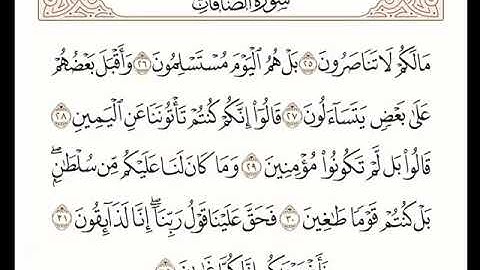 سورة الصافات
مَا لَكُمْ لَا تَنَاصَرُونَ ٢٥ بَلْ هُمُ الْيَوْمَ مُسْتَسْلِمُونَ ٢٦ وَأَقْبَلَ بَعْضُهُمْ
عَلَىٰ بَعْضٍ يَتَسَاءَلُونَ ٢٧ قَالُوا إِنَّكُمْ كُنتُمْ تَأْتُونَنَا عَنِ الْيَمِينِ ٢٨
قَالُوا بَل لَّمْ تَكُونُوا مُؤْمِنِينَ ٢٩ وَمَا كَانَ لَنَا عَلَيْكُم مِّن سُلْطَانٍ ۖ
بَلْ كُنتُمْ قَوْمًا طَاغِينَ ٣٠ فَحَقَّ عَلَيْنَا قَوْلُ رَبِّنَا ۖ إِنَّا لَذَائِقُونَ ٣١